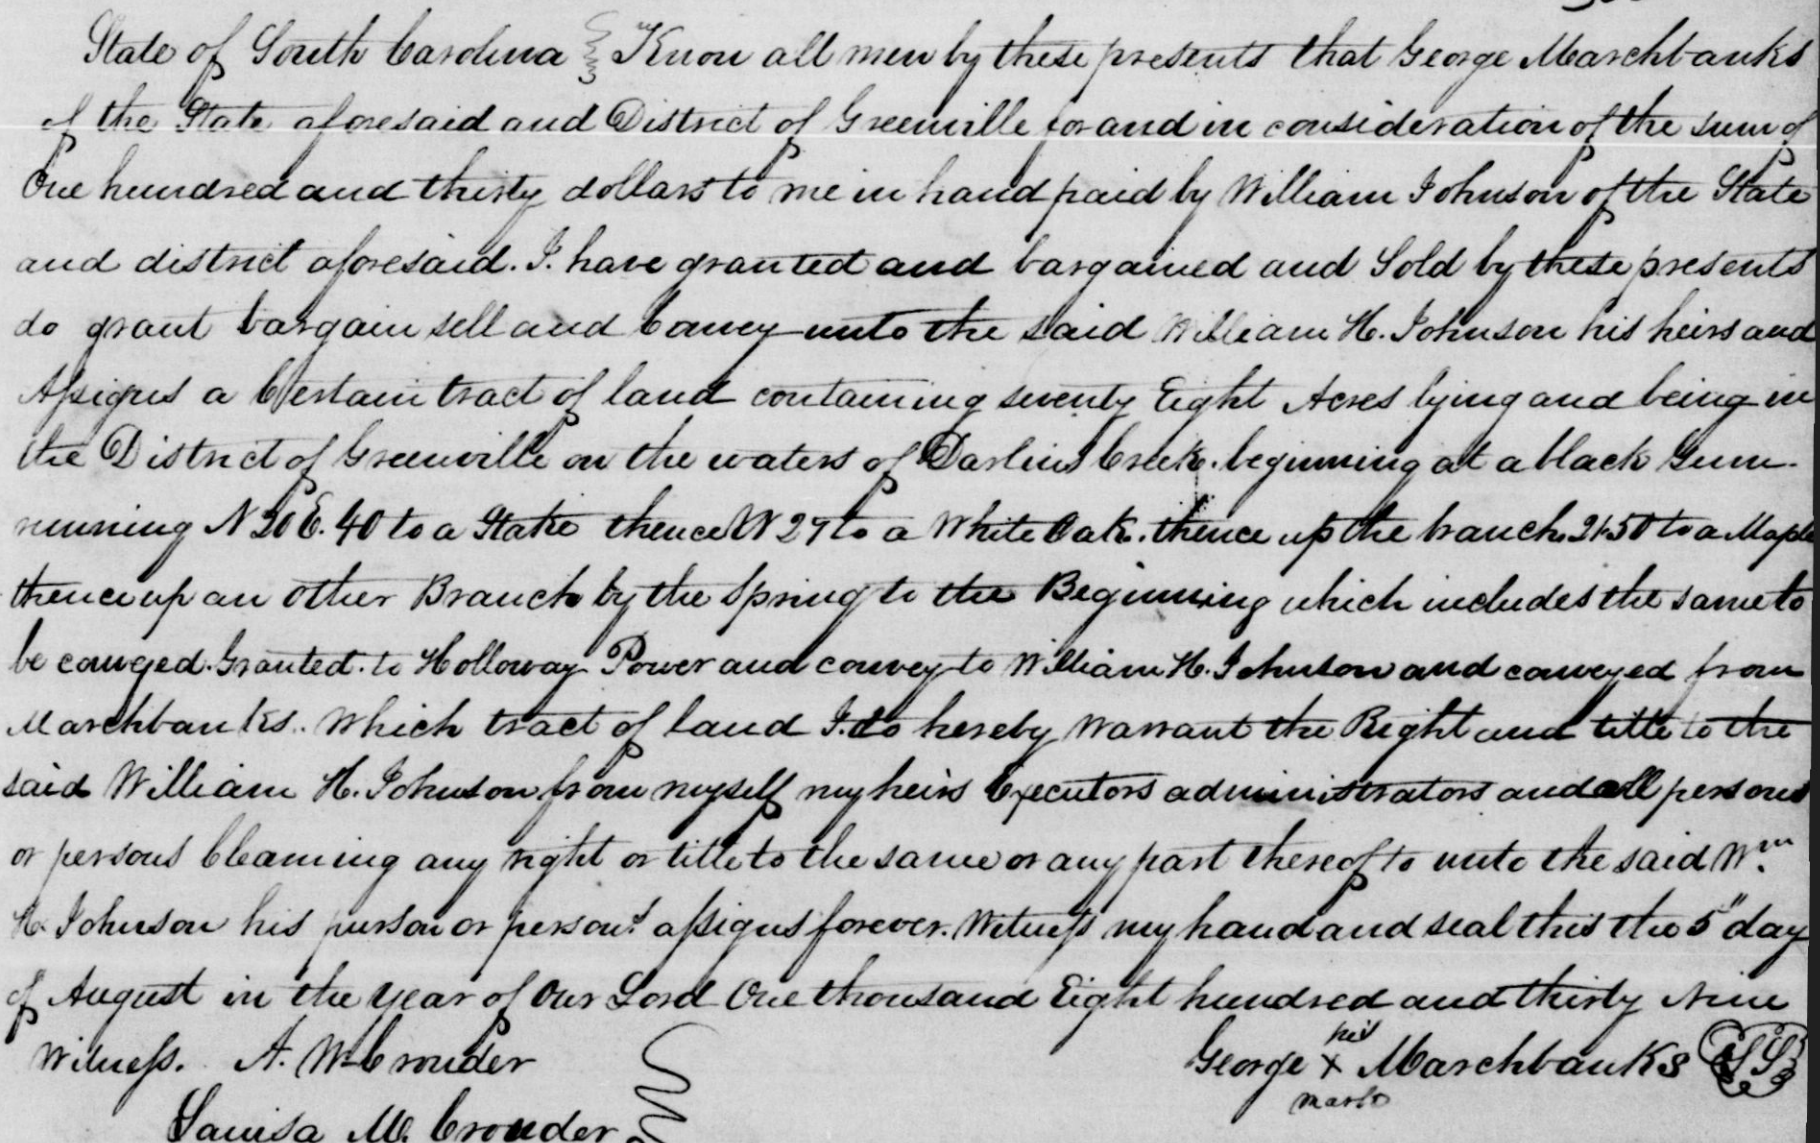 State of South Carolina Know all men by these presents that George Marchbanks
of the State aforesaid and District of Greenville for and in consideration of the sum of
One hundred and thirty dollars to me in hand paid by William Johnson of the State
and district aforesaid. I. have granted and bargained and Sold by these presents
do grant bargain sell and Convey unto the said William H. Johnson his heirs and
Assigns a Certain tract of land containing seventy Eight Acres lying and being in
the District of Greenville on the waters of Darlins Creek. beginning at a black Gum
running N 30 E. 40 to a Stake thence W 27 to a White Oak. thence up the branch to a Maple
thence up an other Branch by the Spring to the Beginning which includes the same to
be conveyed. Granted. to Holloway Power and convey to William H. Johnson and conveyed from
Marchbanks. Which tract of land I. do hereby Warrant the Right and title to the
said William H. Johnson from myself my heirs Executors administrators and all persons
or persons Claming any right or title to the same or any part thereof to unto the said Wm
H. Johnson his person or persons assigns forever. Witness my hand and seal this the 5" day
of August in the year of Our Lord One thousand Eight hundred and thirty Nine
his
Witness. A. W Crouder George x Marchbanks
mark
Louisa M. Crouder